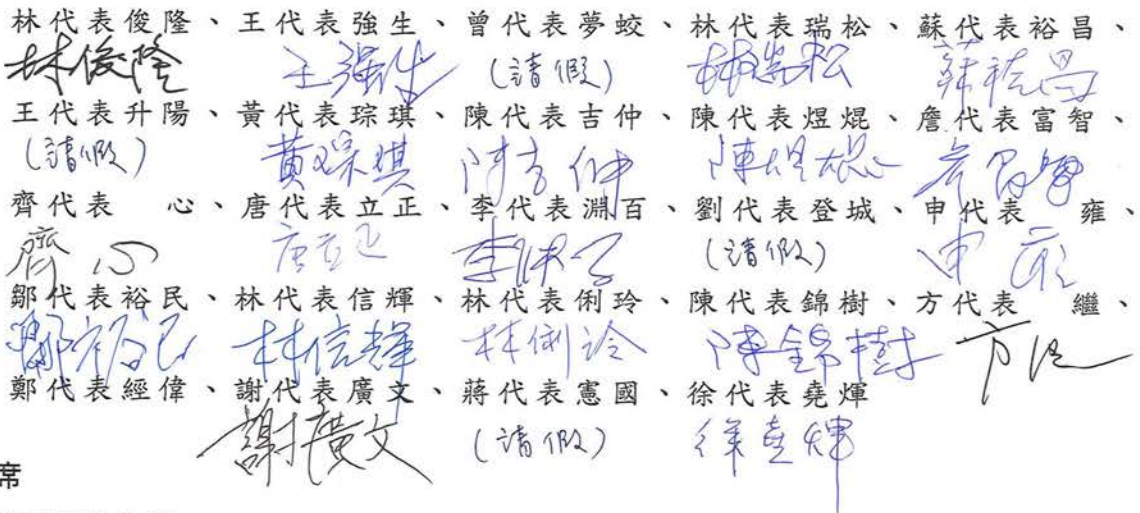 林代表俊隆、王代表強生、曾代表夢蛟、林代表瑞松、蘇代表裕昌、
林俊隆 王強生 (請假) 林瑞松 蘇裕昌
王代表升陽、黃代表琮琪、陳代表吉仲、陳代表煜焜、詹代表富智、
(請假) 黃琮琪 陳吉仲 陳煜焜 詹富智
齊代表 心、唐代表立正、李代表淵百、劉代表登城、申代表 雍、
齊心 唐立正 李淵百 (請假) 申雍
鄒代表裕民、林代表信輝、林代表俐玲、陳代表錦樹、方代表 繼、
鄒裕民 林信輝 林俐玲 陳錦樹 方繼
鄭代表經偉、謝代表廣文、蔣代表憲國、徐代表堯煇
謝廣文 (請假) 徐堯煇
席